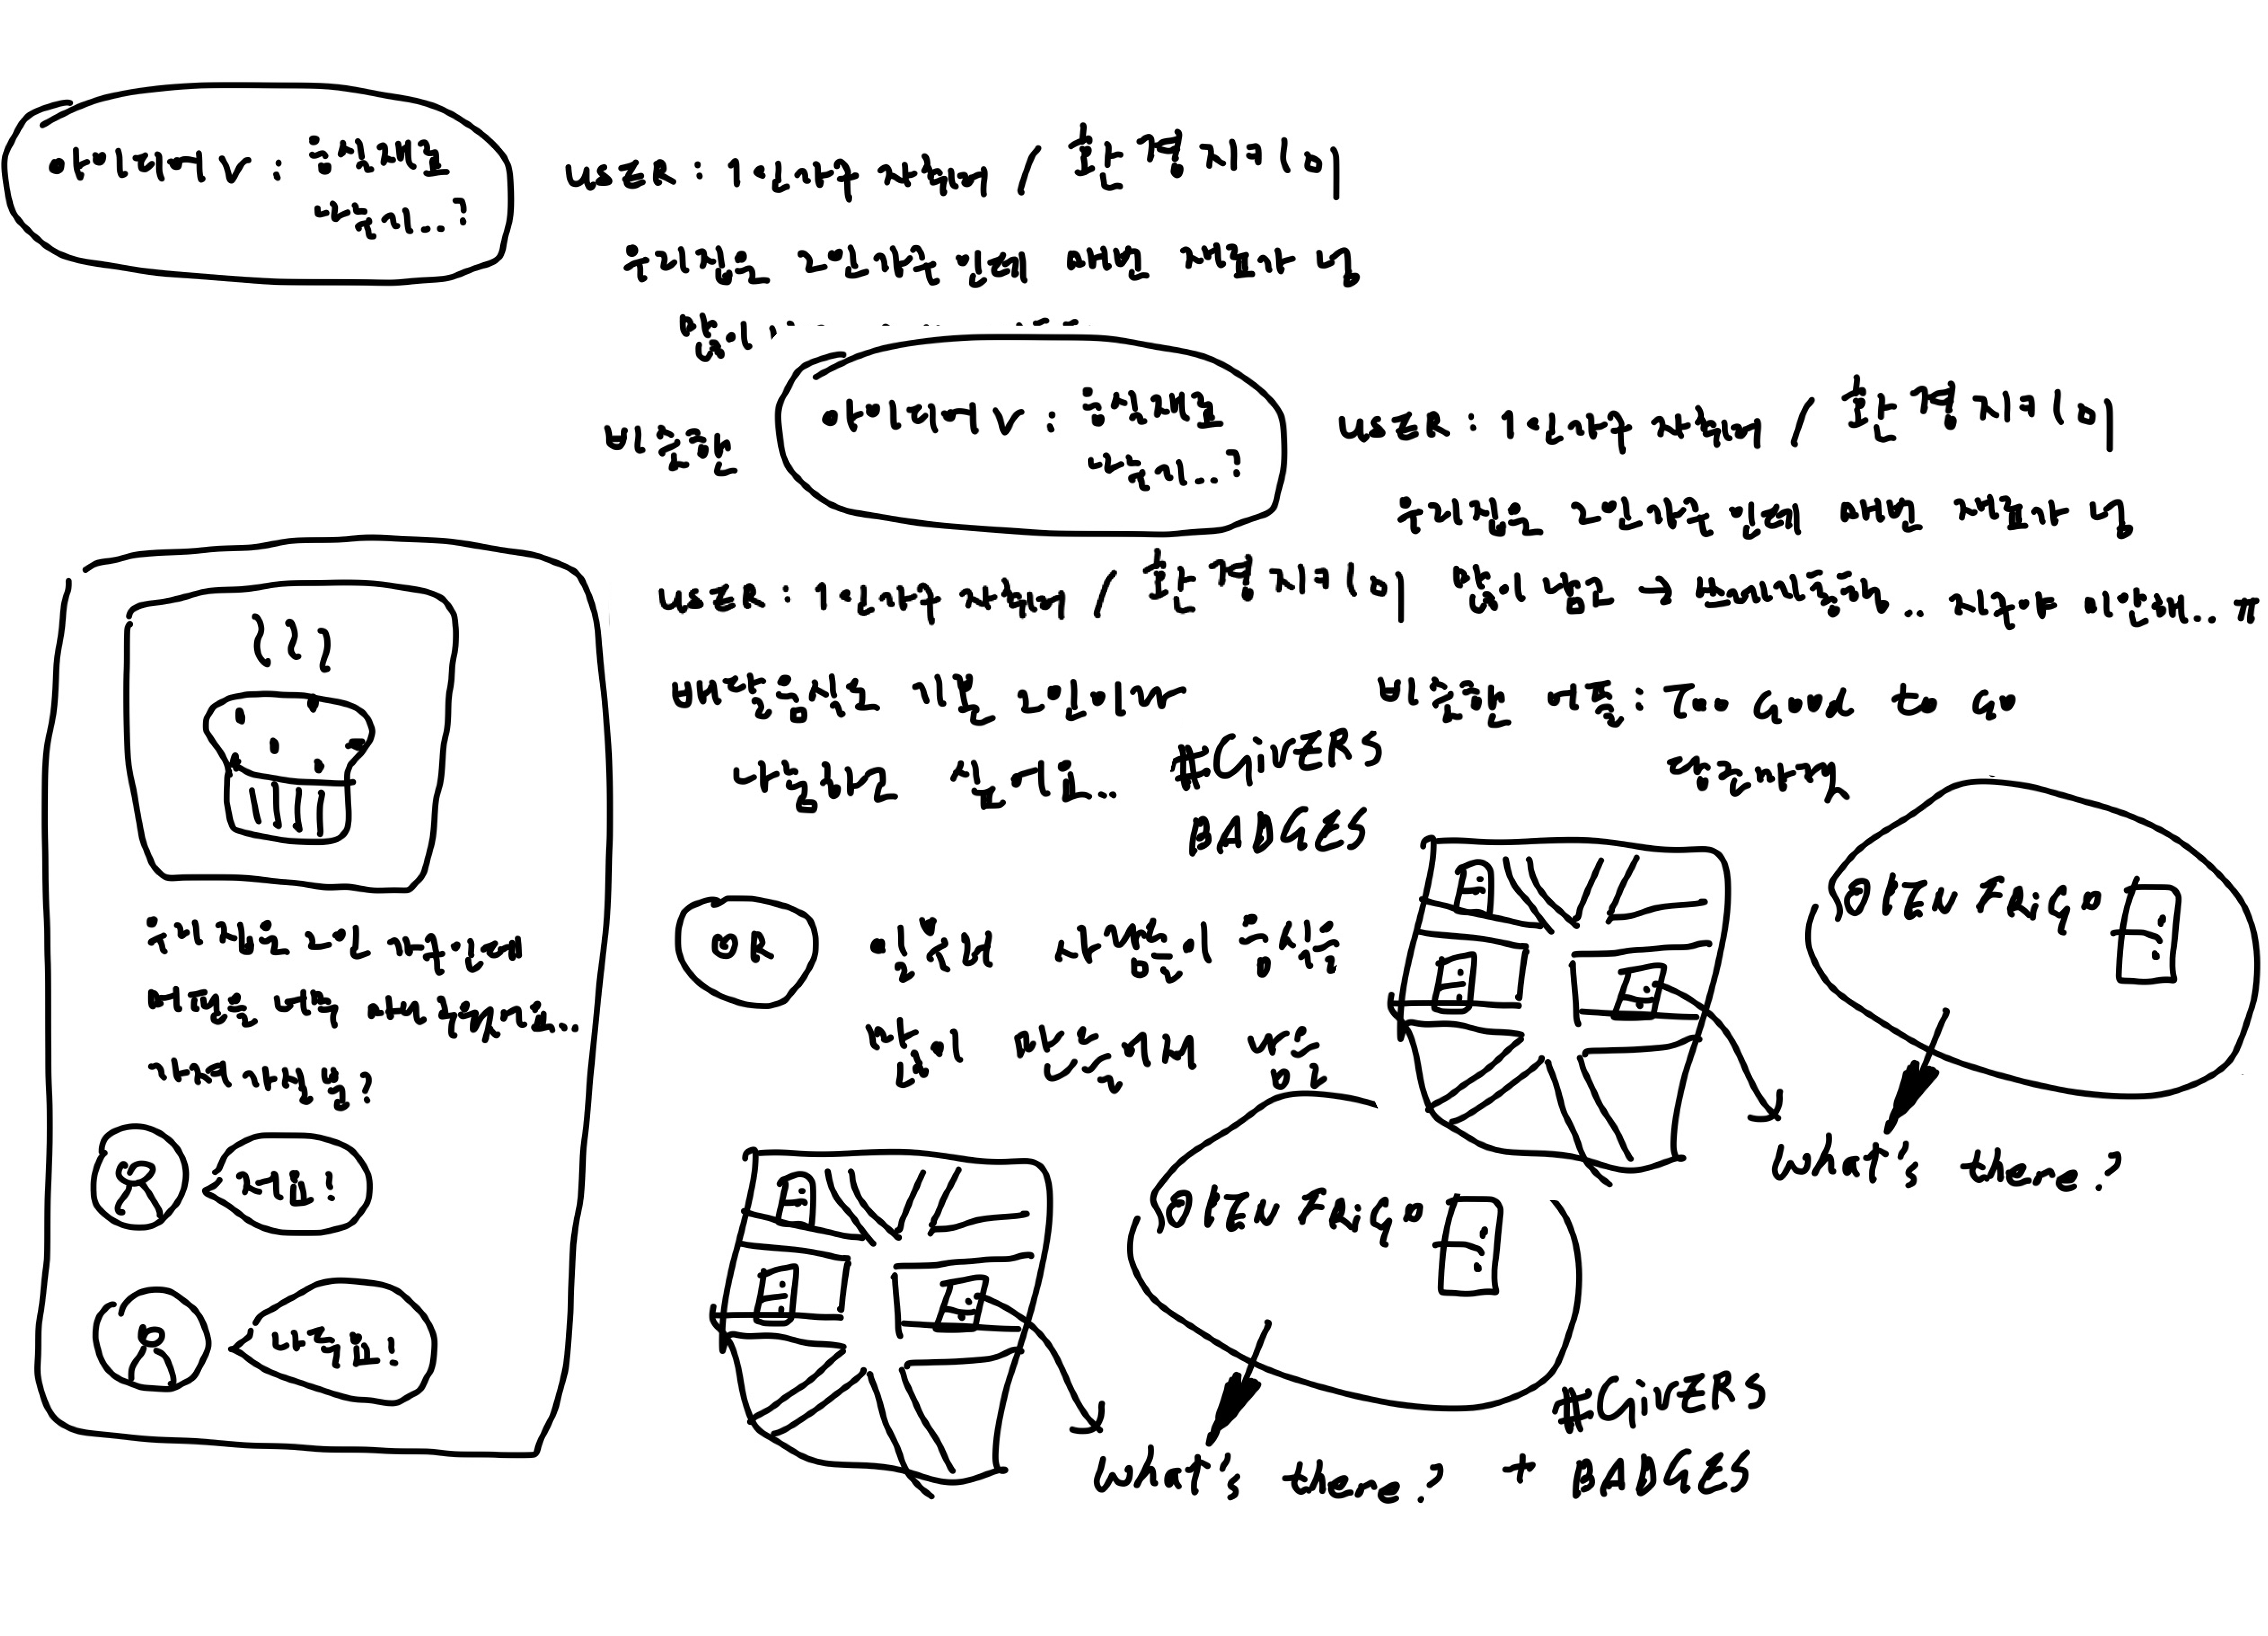 아이디어 V : 음식재료
나누기...?
USER : 1인가구 자취러 / 환경지키미
우리집은 2인가구 인데 매번 재료가 넘
많이
비슷한
아이디어 V : 음식재료
나누기...?
USER : 1인가구 자취러 / 환경지키미
우리집은 2인가구 인데 매번 재료가 넘
많이 남고 → 쓰레기통행.. 지구야 미안해... ㅠ
USER : 1인가구 자취러 / 환경지키미
배달음식도 기본 2인이라
나눔하고 싶어요...
#GIVERS
BADGES
비슷한 어플 : Too Good to Go
당근마켓
OR
일부러 사람들이 음식을
많이 만들어서 나눔
OPEN FRIGO
what's there?
우리 집은 2인 가구인데
머핀을 너무 많이
가져가실 분?
저요!
나두요!
OPEN FRIGO
what's there? + #GIVERS
BADGES